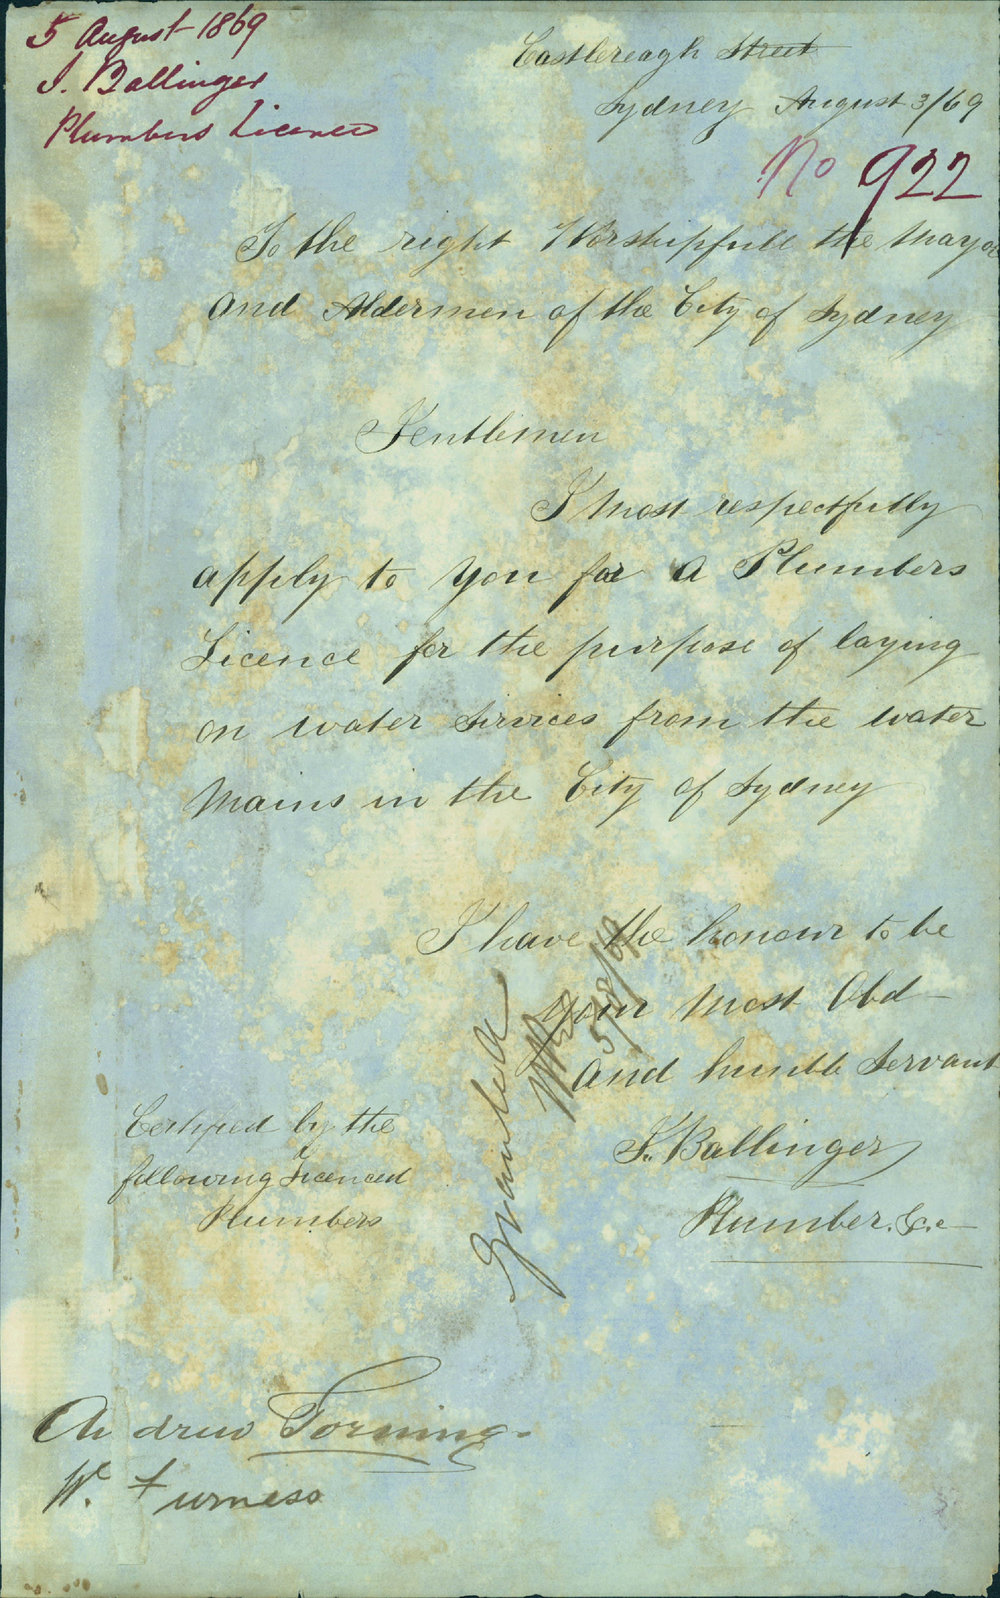 5 August 1869
J. Ballinger
Plumbers Licence
Castlereagh Street
Sydney August 3/69
No 922
To the right Worshipfull the Mayor
and Aldermen of the City of Sydney
Gentlemen
I most respectfully
apply to you for a Plumbers
Licence for the purpose of laying
on water Services from the water
Mains in the City of Sydney
I have the honour to be
your most Obd
and humble Servant
J. Ballinger
Plumber. &c.
Granted
5/8/69
Certified by the
following Licenced
Plumbers
Andrew Torning.
W. Furness